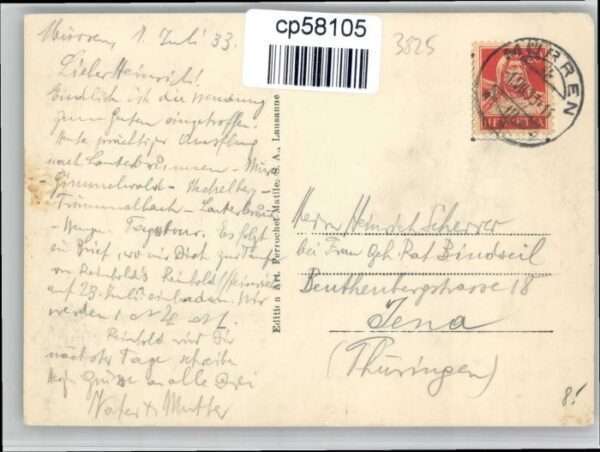 Mürren, 1. Juli 33.
Lieber Heinrich!
Endlich ist die Wendung
zum Guten eingetroffen.
Heute prächtiger Ausflug
nach Lauterbrunnen - Mürren
Gimmelwald -
Trümmelbach - Lauterbrunnen
- Wengen Tagestour. Es folgt
ein Brief, wo wir Dich zur Taufe
von Reinholds Reinhold Heinrich
auf 23. Juli einladen. Wir
werden
Reinhold wird Dir
nächster Tage schreiben
Grüße an alle Drei
Vater & Mutter
cp58105
3825
MÜRREN
HELVETIA
Edition Art. Perrochet Matile, S. A., Lausanne
Herrn Heinrich Scherrer
bei Frau Geh. Rat Bindseil
Beuthenbergstrasse 18
Jena
(Thüringen)
8.